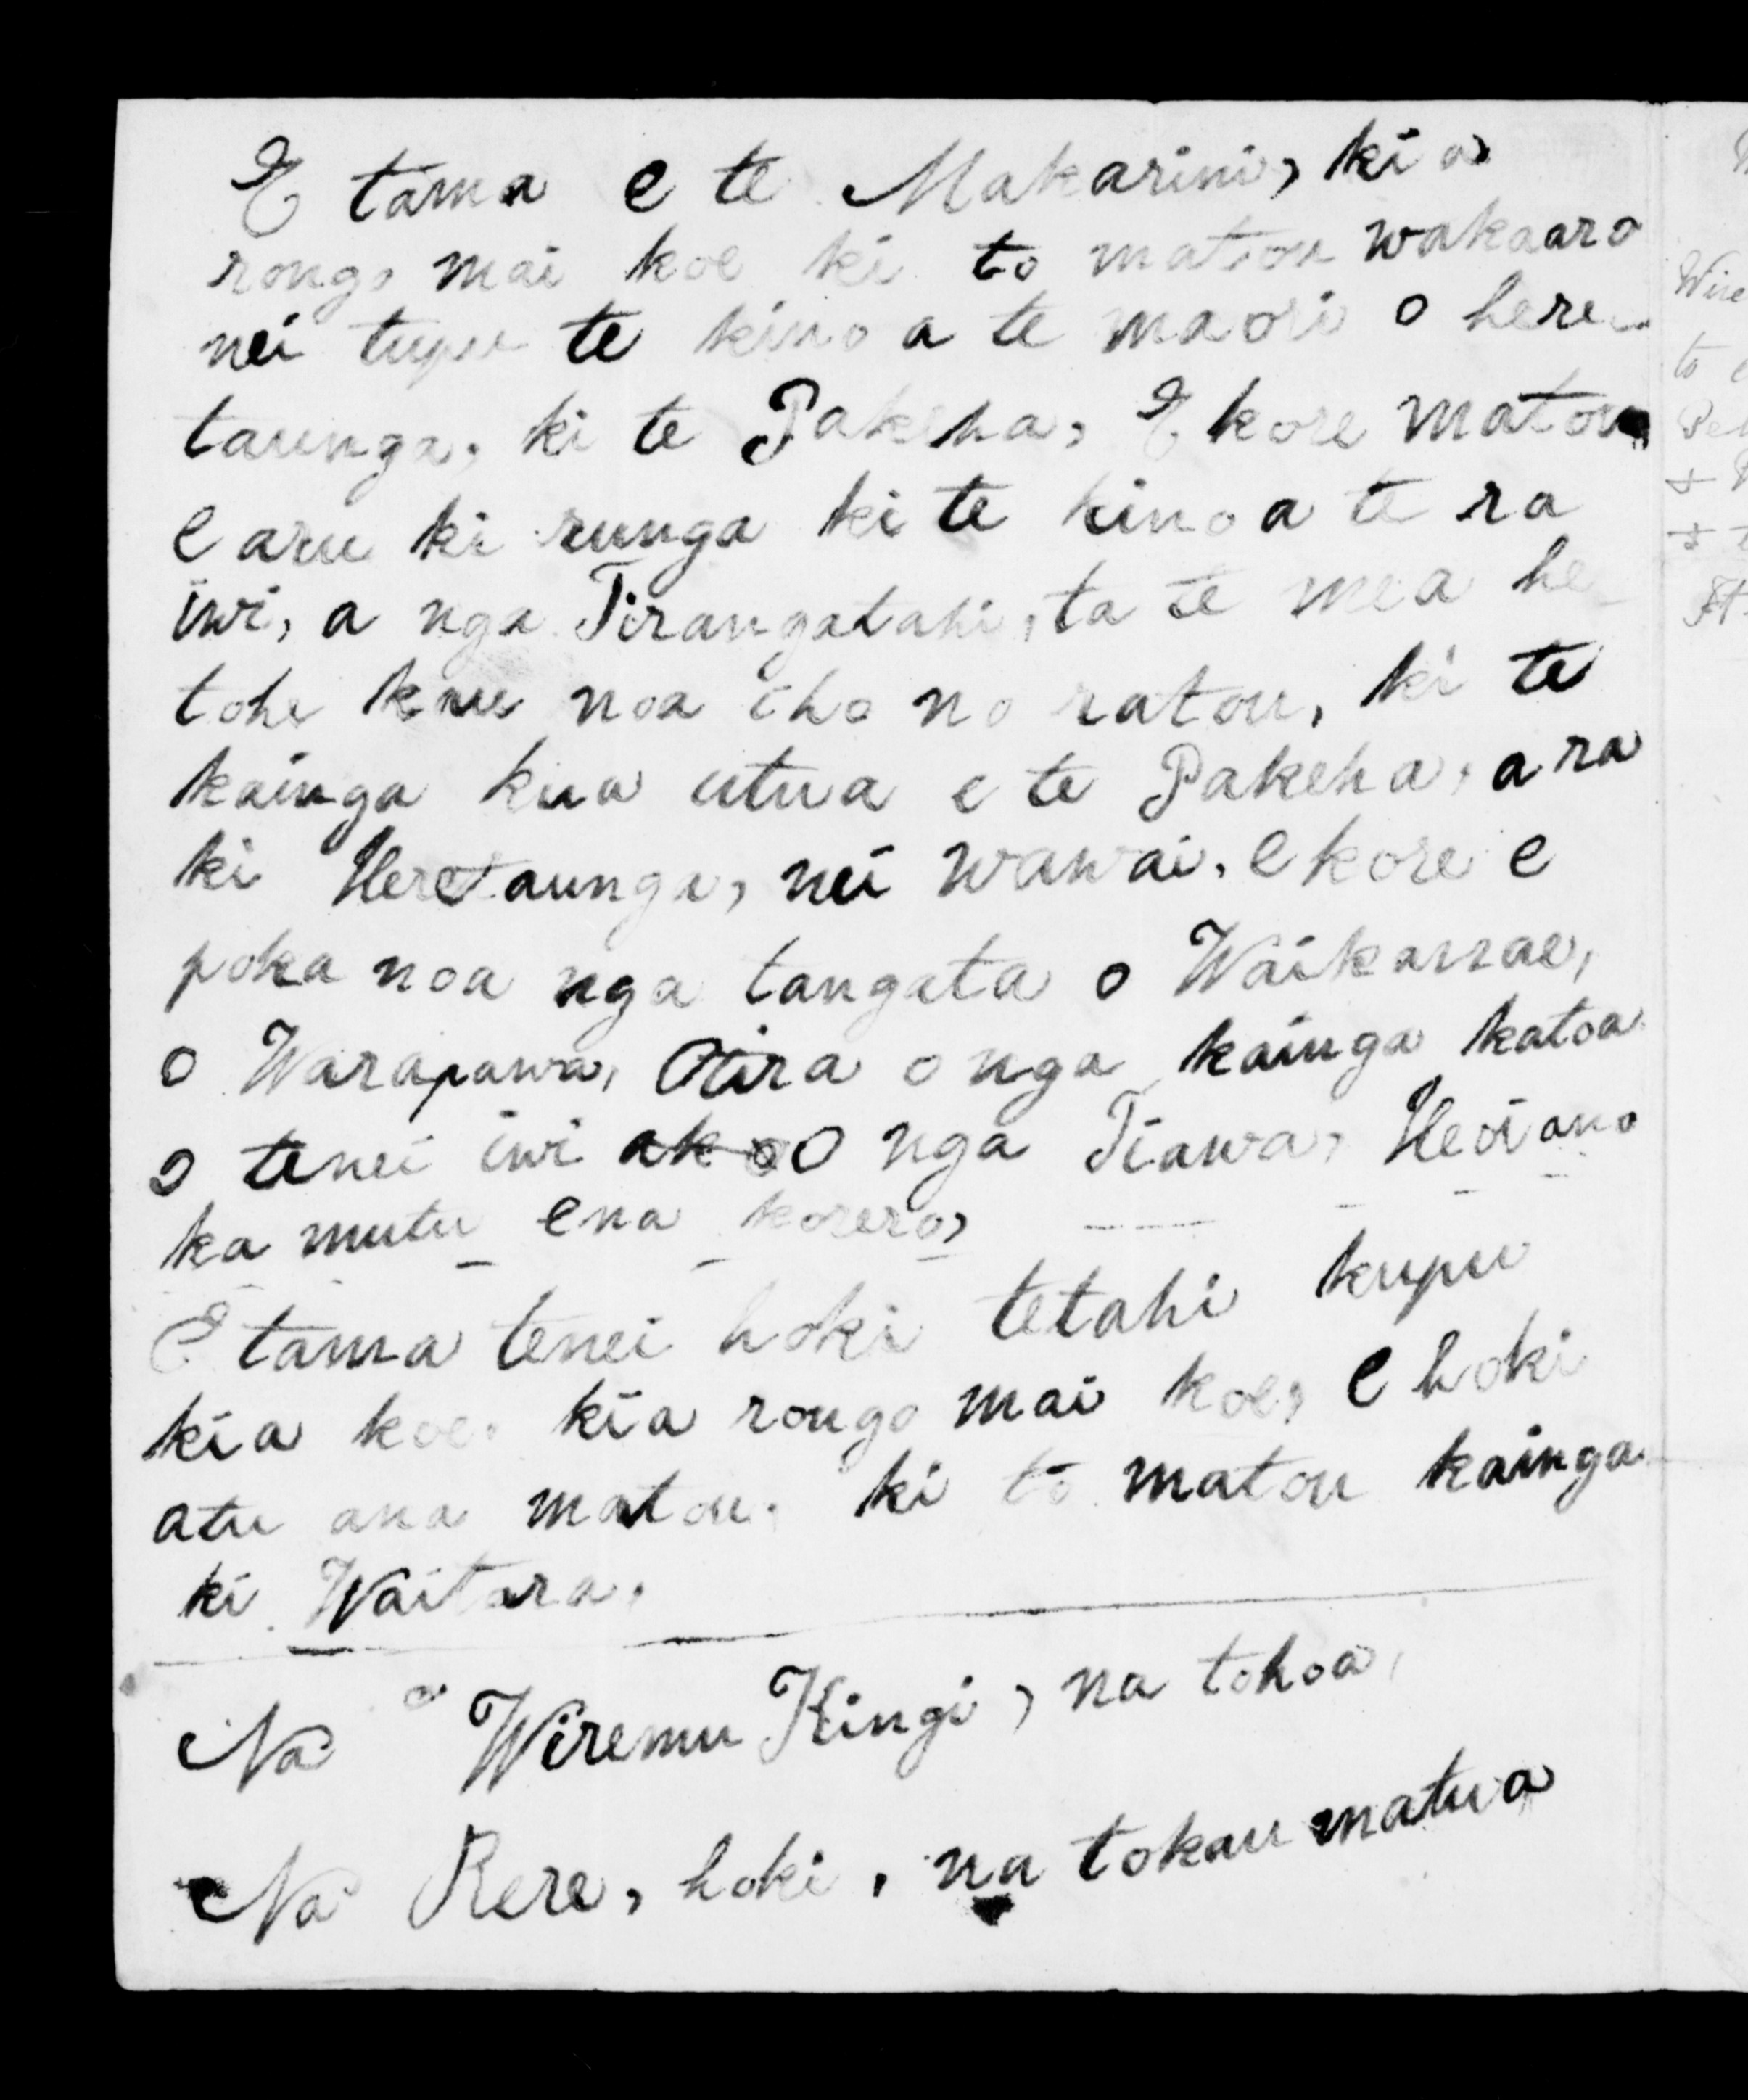 E tama e te Makarini, kia
rongo mai koe ki to matou wakaaro
nei tupu te kino a te maori o here-
taunga, ki te Pakeha, E kore matou
e aru ki runga ki te kino a te ra
iwi, a nga Tirangatahi, ta te mea he
tohe kau noa iho no ratou, ki te
kainga kua utua e te Pakeha, ara
ki Heretaunga, nei wawai, e kore e
poka noa nga tangata o Waikanae,
o Warapawa, Otira o nga kainga katoa
o tenei iwi ak o O nga Tiawa, Heoi ano
ka mutu ena korero,
E tama tenei hoki tetahi kupu
kia koe, kia rongo mai koe, e hoki
atu ana matou, ki to matou kainga
ki Waitara,
Na Wiremu Kingi, na tohoa,
Na Rere, hoki, na tokau matua
Wire
to